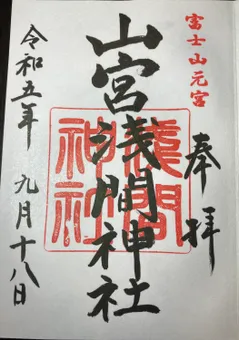 富士山元宮
奉拝
山宮浅間神社
淺間
神社
令和五年 九月十八日